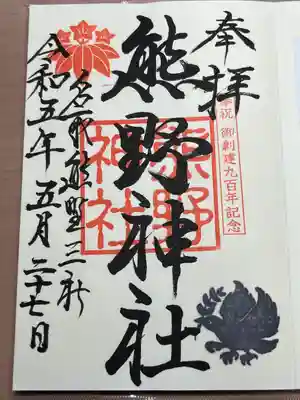 奉拝
奉祝 御創建九百年記念
熊野神社
熊野
神社
名取熊野三社
令和五年 五月二十七日